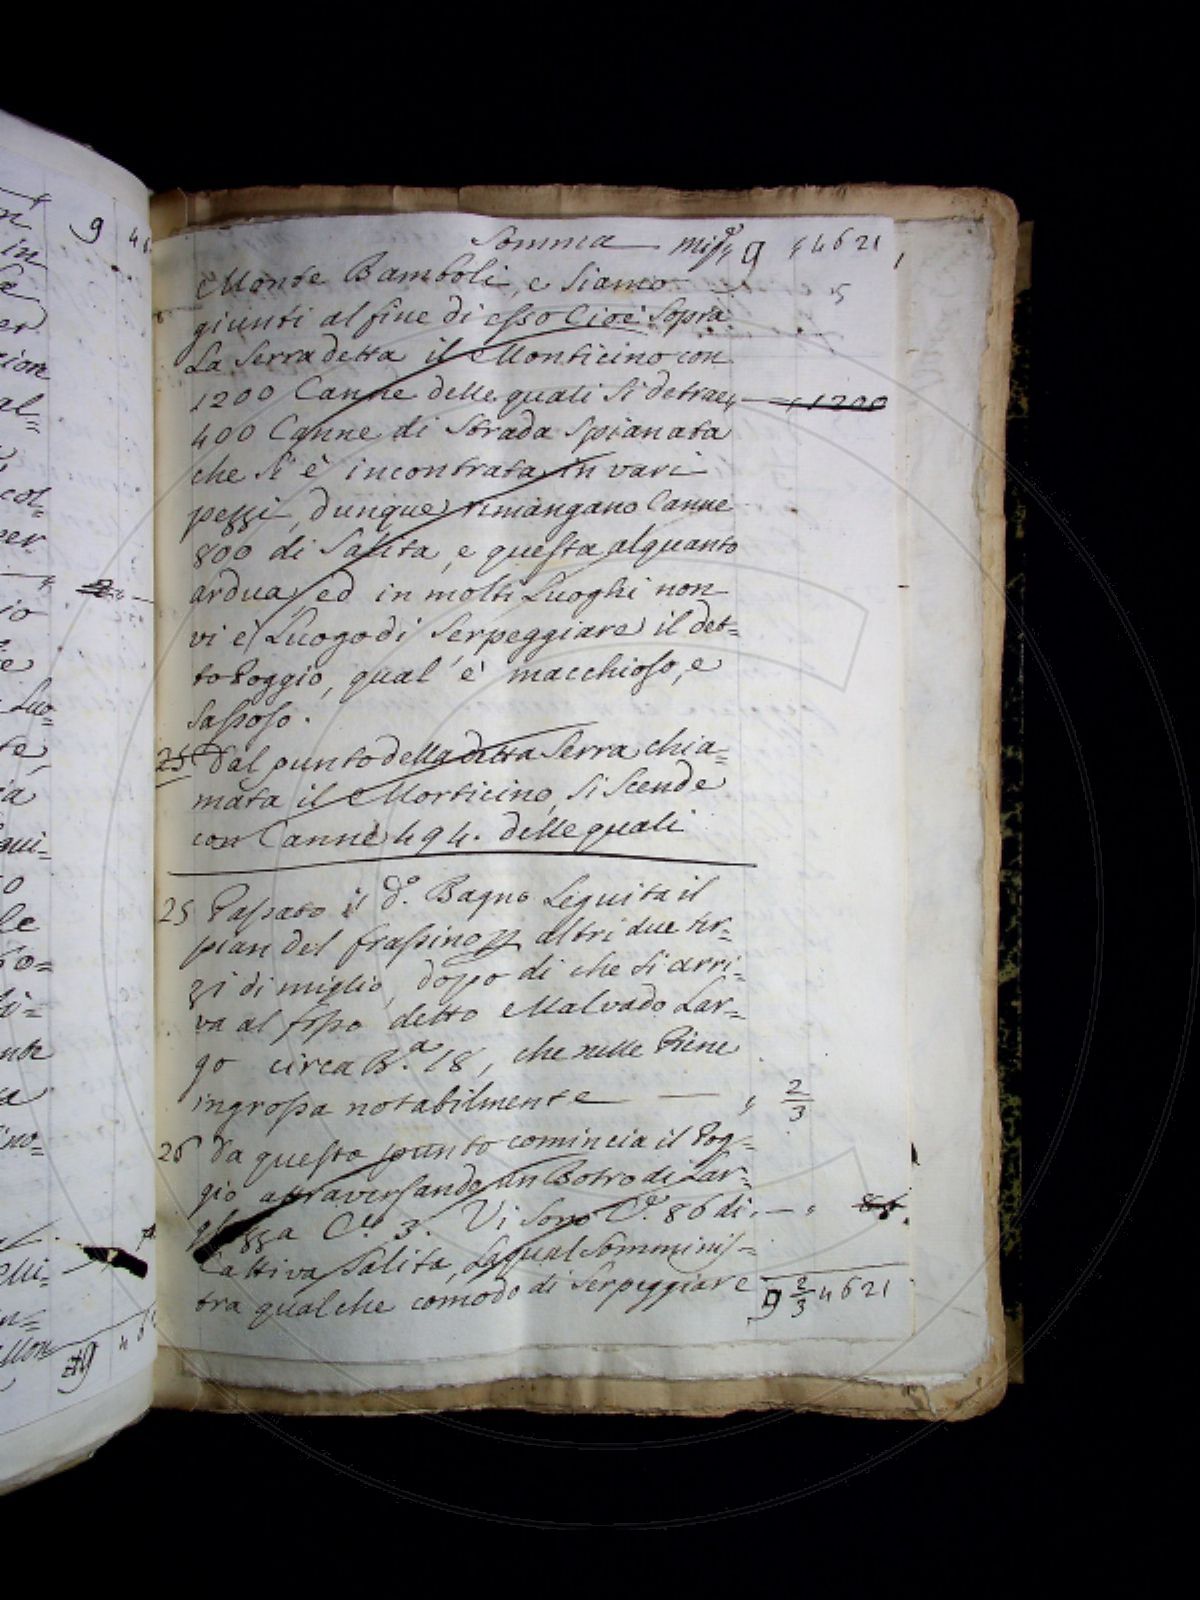 Somma — mig.ª 9 „ 4621
Monte Bamboli, e Siamo
giunti al fine di esso Cioè Sopra
La Serra detta il Monticino con
1200 Canne delle quali Si detrae, — „ 1200
400 Canne di Strada Spianata
che Si è incontrata in vari
pezzi, dunque rimangano Canne
800 di Salita, e questa alquanto
ardua, ed in molti Luoghi non
vi è Luogo di Serpeggiare il det=
to Poggio, qual' è macchioso, e
Sassoso.
25 Dal punto della detta Serra chia=
mata il Morticino, Si Scende
con Canne 494. delle quali
25 Passato il d.º Bagno Seguita il
pian del frassino altri due ter=
zi di miglio, dopo di che Si arri=
va al fosso detto Malvado Lar=
go circa B.ª 18, che nelle Piene
ingrossa notabilmente — „ 2/3
26 Da questo punto comincia il Pog=
gio attraversando un Botro di Lar=
ghezza C.e 3. Vi Sono C.e 86 di — „ 86.
Cattiva Salita, La qual Somminis=
tra qualche comodo di Serpeggiare
9 2/3 4621